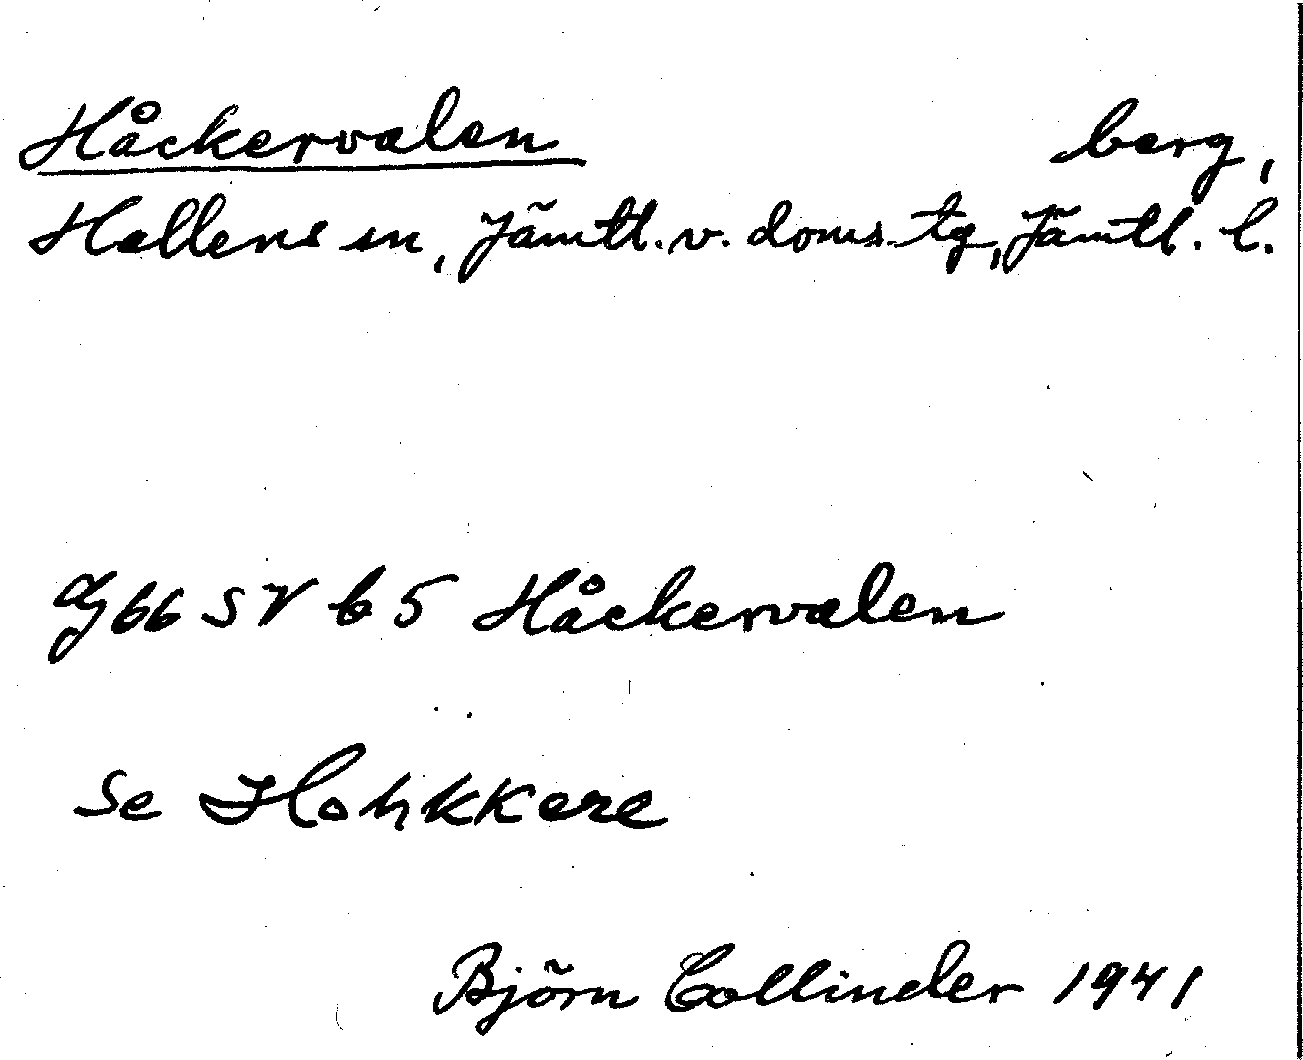 Håckervalen berg,
Hallens sn, Jämtl. v. doms. tg, Jämtl. l.
G 66 SV b 5 Håckervalen
se Hohkkere
Björn Collinder 1941